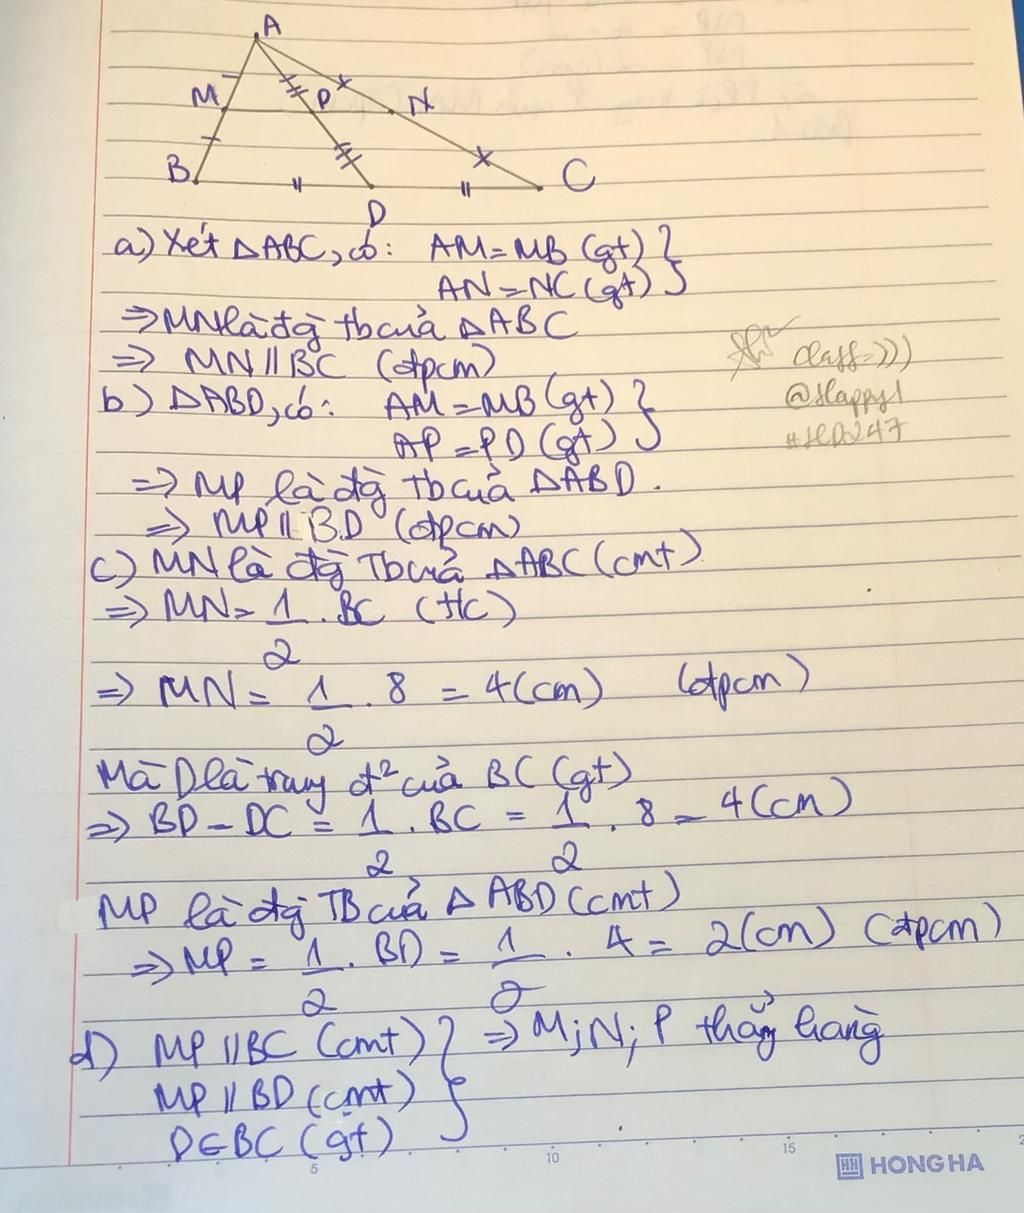 A
M
P
N
B
C
D
a) Xét ΔABC, có: AM = MB (gt) }
AN = NC (gt)
⇒ MN là đg̀ tb của ΔABC
⇒ MN // BC (đpcm)
b) ΔABD, có: AM = MB (gt) }
AP = PD (gt)
⇒ MP là đg̀ Tb của ΔABD.
⇒ MP // BD (đpcm)
c) MN là đg̀ Tb của ΔABC (cmt)
⇒ MN = 1/2 . BC (t/c)
⇒ MN = 1/2 . 8 = 4 (cm) (đpcm)
Mà D là trung đ² của BC (gt)
⇒ BD = DC = 1/2 . BC = 1/2 . 8 = 4 (cm)
MP là đg̀ TB của Δ ABD (cmt)
⇒ MP = 1/2 . BD = 1/2 . 4 = 2 (cm) (đpcm)
d) MP // BC (cmt) } ⇒ M; N; P thẳng hàng
MP // BD (cmt)
D ∈ BC (gt)
class=)))
@Happy1
#HD247
5 10 15
HH HONG HA